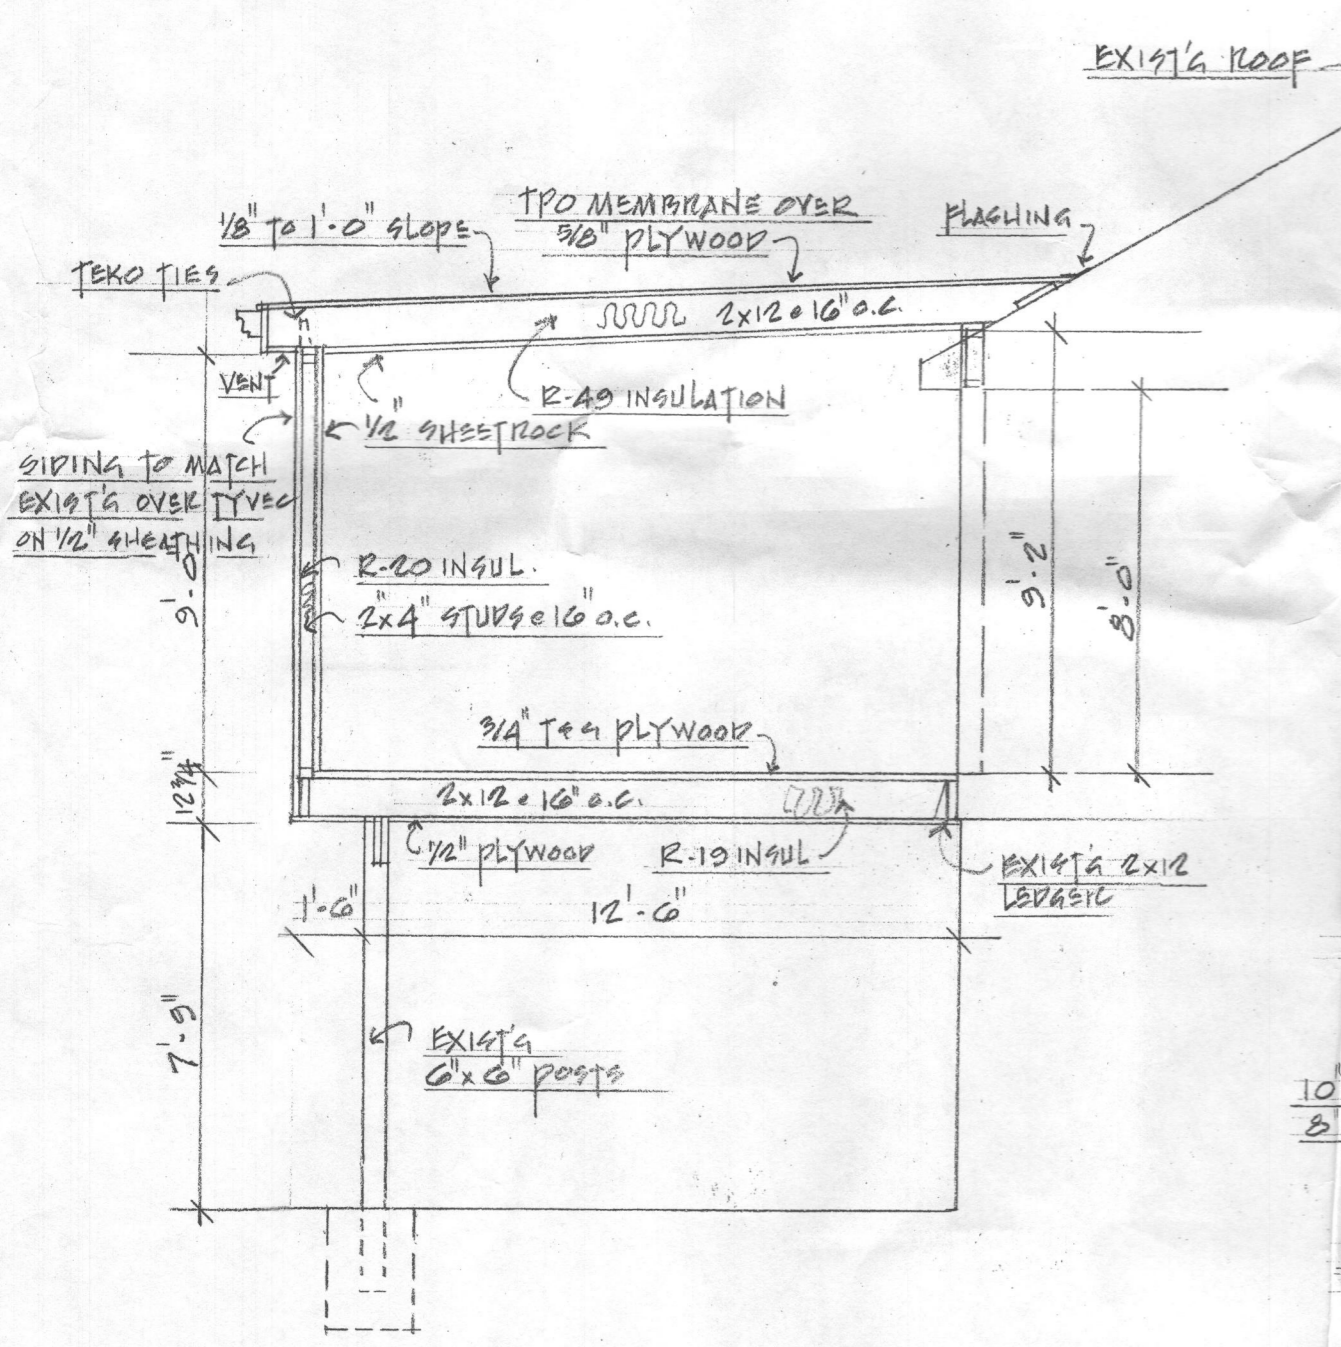 EXIST'G ROOF
TPO MEMBRANE OVER
5/8" PLYWOOD
1/8" TO 1'-0" SLOPE
FLASHING
TEKO TIES
2x12 @ 16" O.C.
VENT
R-49 INSULATION
1/2" SHEETROCK
SIDING TO MATCH
EXIST'G OVER TYVEC
ON 1/2" SHEATHING
9'-0"
R-20 INSUL.
2"x4" STUDS @ 16" O.C.
9'-2"
8'-0"
3/4" T&G PLYWOOD
12 3/4"
2x12 @ 16" O.C.
1/2" PLYWOOD
R-19 INSUL
EXIST'G 2x12
LEDGER
1'-6"
12'-6"
7'-9"
EXIST'G
6"x6" POSTS
10"
8"